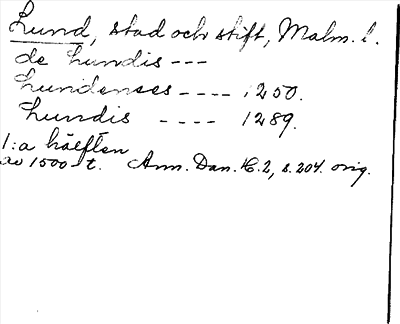 Lund, stad och stift, Malm. l.
de Lundis ---
Lundenses ---- 1250.
Lundis ---- 1289.
1:a hälften
av 1500-t. Ann. Dan. 16.2, s. 204. orig.